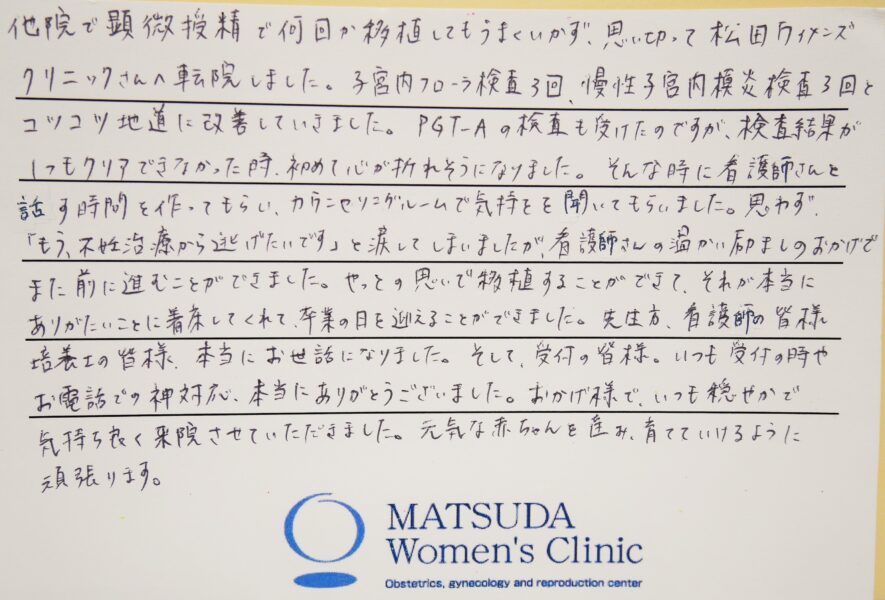 他院で顕微授精で何回か移植してもうまくいかず、思い切って松田ウイメンズ
クリニックさんへ転院しました。子宮内フローラ検査3回、慢性子宮内膜炎検査3回と
コツコツ地道に改善していきました。PGT-Aの検査も受けたのですが、検査結果が
1つもクリアできなかった時、初めて心が折れそうになりました。そんな時に看護師さんと
話す時間を作ってもらい、カウンセリングルームで気持ちを聞いてもらいました。思わず、
「もう、不妊治療から逃げたいです」と涙してしまいましたが、看護師さんの温かい励ましのおかげで
また前に進むことができました。やっとの思いで移植することができて、それが本当に
ありがたいことに着床してくれて、卒業の日を迎えることができました。先生方、看護師の皆様
培養士の皆様、本当にお世話になりました。そして、受付の皆様。いつも受付の時や
お電話での神対応、本当にありがとうございました。おかげ様で、いつも穏やかで
気持ち良く来院させていただきました。元気な赤ちゃんを産み、育てていけるように
頑張ります。
MATSUDA
Women's Clinic
Obstetrics, gynecology and reproduction center